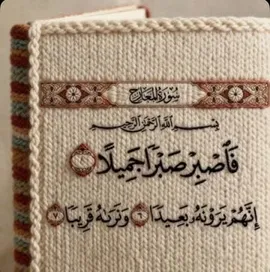 سُورَةُ المَعَارِجِ
بِسْمِ اللَّهِ الرَّحْمَٰنِ الرَّحِيمِ
فَٱصْبِرْ صَبْرًا جَمِيلًا
إِنَّهُمْ يَرَوْنَهُۥ بَعِيدًا ٦ وَنَرَىٰهُ قَرِيبًا ٧